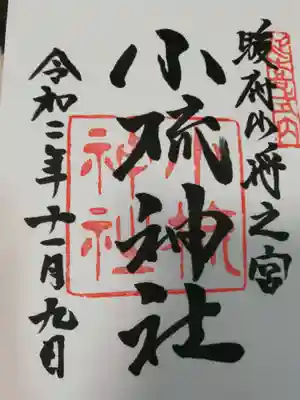 駿府乃将之宮
小梳神社
小梳神社
令和二年十一月九日